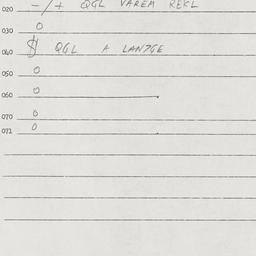 020 -/+ QGL VAREM REKL
030 0
040 $ QGL A LANDGE
050 0
060 0
070 0
071 0